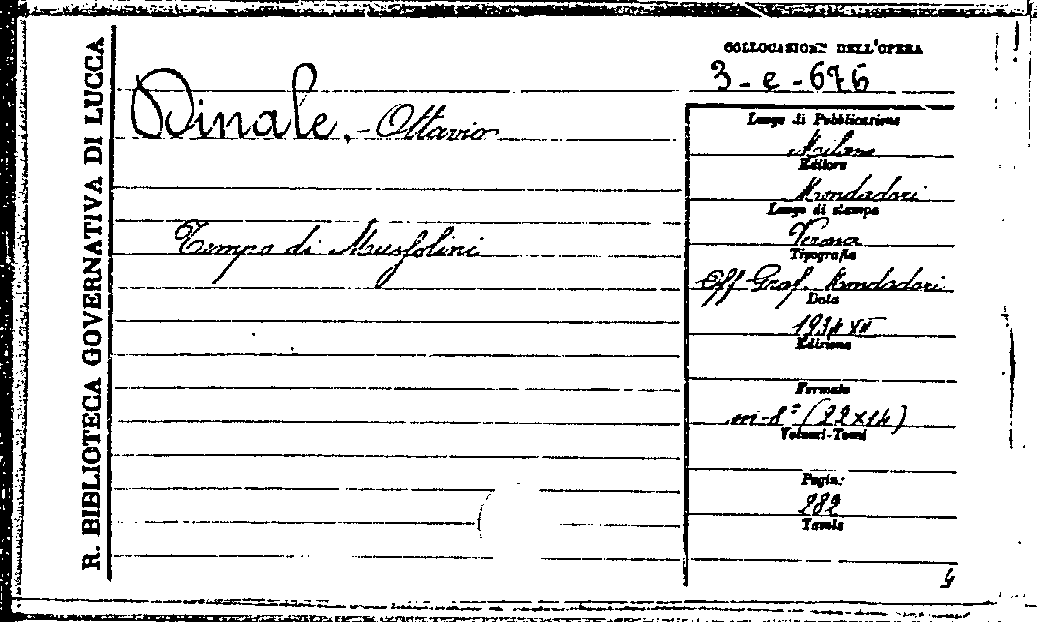 R. BIBLIOTECA GOVERNATIVA DI LUCCA
COLLOCAZIONE DELL'OPERA
3-e-676
Dinale, - Ottavio
Tempo di Mussolini
Luogo di Pubblicazione
Milano
Editore
Mondadori
Luogo di stampa
Verona
Tipografia
Off Graf. Mondadori
Data
1934 XII
Edizione
Formato
in-8° (22x14)
Volumi-Tomi
Pagin.
282
Tavole